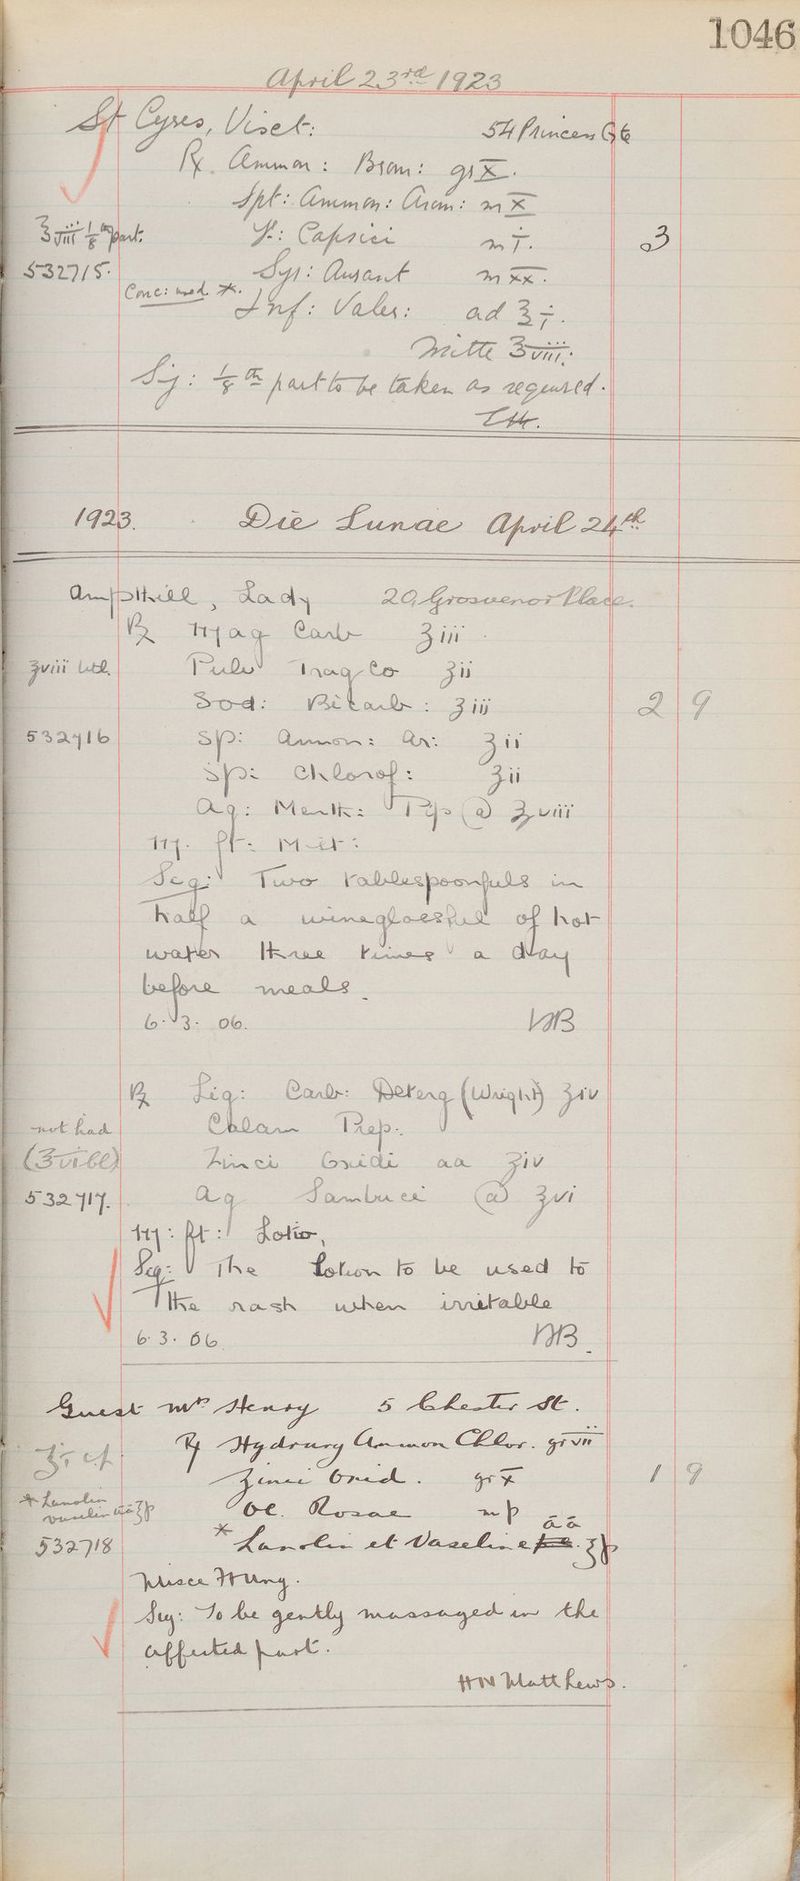 1046
April 23rd 1923
St Cyres, Visct: 54 Princes Gte
Rx Ammon: Brom: gr x.
Spt: Ammon: Arom: m x
℥viii 1/8th part. T: Capsici m i. 3
532715. Syr: Aurant m xx.
Conc: used *. Inf: Valer: ad ℥i.
Mitte ℥viii.
Sig: 1/8th part to be taken as required.
1923. Die Lunae April 24th
Ampthill, Lady 20 Grosvenor Place.
Rx Mag Carb ʒiii
℥viii Pulv Trag Co ʒii
Sod: Bicarb: ʒiii 2 9
532716 Sp: Ammon: Ar: ʒii
Sp: Chlorof: ʒii
Aq: Menth: Pip @ ℥viii
M. ft: Mist:
Sig: Two tablespoonfuls in
half a wineglassful of hot
water three times a day
before meals.
6. 3. 06. DB
Rx Liq: Carb: Deterg (Wright) ʒiv
not had Calam Prep:
(℥vi bll) Zinci Oxidi aa ʒiv
532717. Aq Sambuci @ ℥vi
M: ft: Lotio,
Sig: The Lotion to be used to
the rash when irritable
6. 3. 06 DB.
Guest Mrs Henry 5 Chester St.
℥i c.p. Rx Hydrarg Ammon Chlor. gr vii
Zinci Oxid. gr x 1 9
* Lanolin
vaselin āā ʒp Ol. Rosae m p
532718 * Lanolin et Vaseline āā ʒp
Misce Ft Ung.
Sig: To be gently massaged in the
affected part.
HN Matthews.